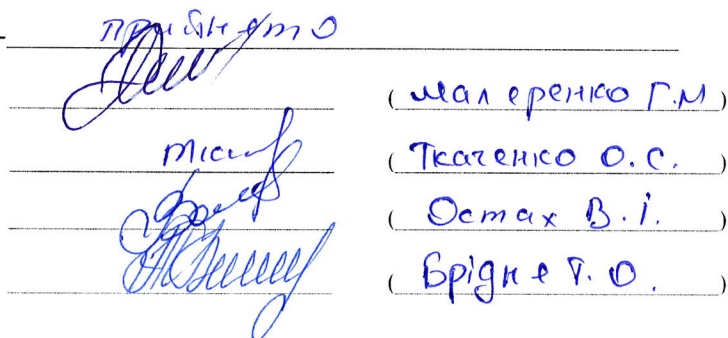 прийнято
(Маляренко Г.М)
(Ткаченко О.С.)
(Остах В.І.)
(Брідня Т.О.)